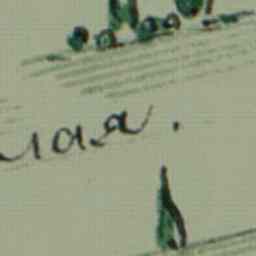 лая.